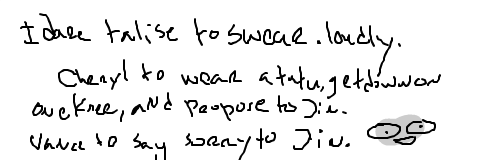 I dare talise to swear. loudly.
Cheryl to wear a tutu, get down on
one knee, and propose to Jin.
Vance to say sorry to Jin.